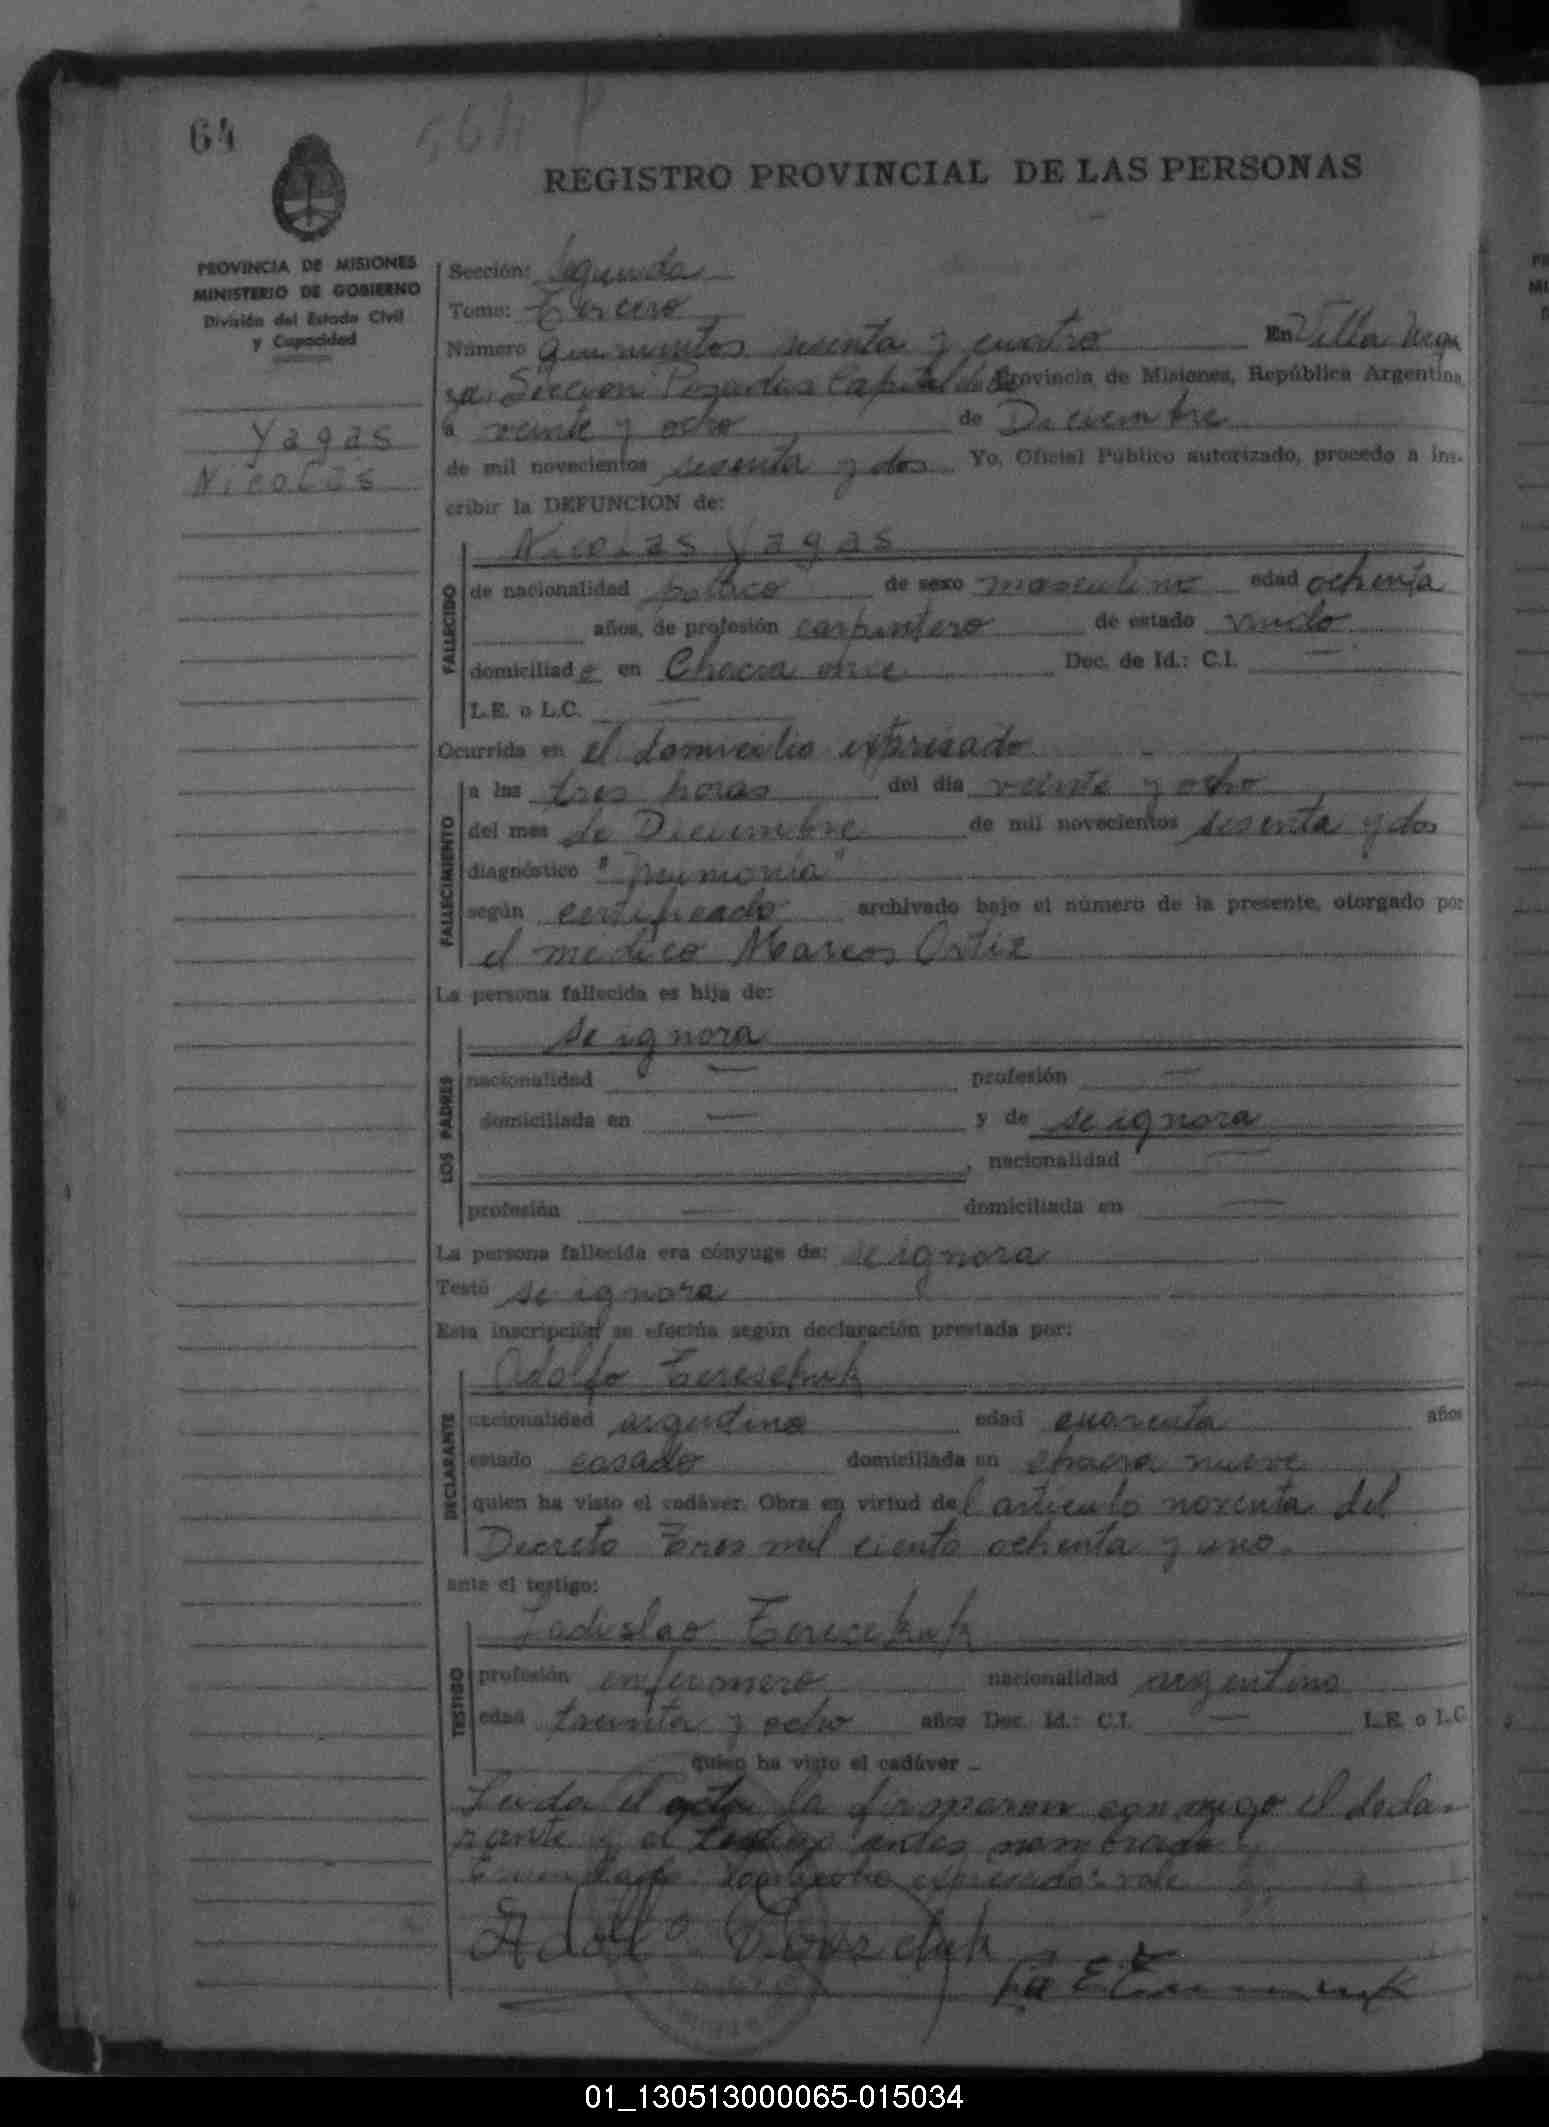 64
564
REGISTRO PROVINCIAL DE LAS PERSONAS
PROVINCIA DE MISIONES
MINISTERIO DE GOBIERNO
División del Estado Civil
y Capacidad
Yagas
Nicolás
Sección: Segunda
Tomo: Tercero
Número quinientos sesenta y cuatro En Villa Urqui
za, Sección Posadas Capital de la Provincia de Misiones, República Argentina,
a veinte y ocho de Diciembre
de mil novecientos sesenta y dos Yo, Oficial Público autorizado, procedo a ins-
cribir la DEFUNCION de:
Nicolas Yagas
FALLECIDO
de nacionalidad polaco de sexo masculino edad ochenta
años, de profesión carpintero de estado viudo
domiciliado en Chacra once Doc. de Id.: C.I. —
L.E. o L.C. —
Ocurrida en el domicilio expresado
FALLECIMIENTO
a las tres horas del día veinte y ocho
del mes de Diciembre de mil novecientos sesenta y dos
diagnóstico "Neumonia"
según certificado archivado bajo el número de la presente, otorgado por
el medico Marcos Ortiz
La persona fallecida es hija de:
LOS PADRES
se ignora
nacionalidad — profesión —
domiciliada en — y de se ignora
, nacionalidad —
profesión — domiciliada en —
La persona fallecida era cónyuge de: se ignora
Testó se ignora
Esta inscripción se efectúa según declaración prestada por:
DECLARANTE
Adolfo Tereschuk
nacionalidad argentina edad cuarenta años
estado casado domiciliada en chacra nueve
quien ha visto el cadáver. Obra en virtud del articulo noventa del
Decreto Tres mil ciento ochenta y uno.
ante el testigo:
TESTIGO
Ladislao Tereschuk
profesión enfermero nacionalidad argentino
edad treinta y ocho años Doc. Id.: C.I. — L.E. o L.C.
quien ha visto el cadáver –
Leida el acta la firmaron conmigo el decla-
rante y el testigo antes nombrado
expresado: vale
Adolfo
01_130513000065-015034